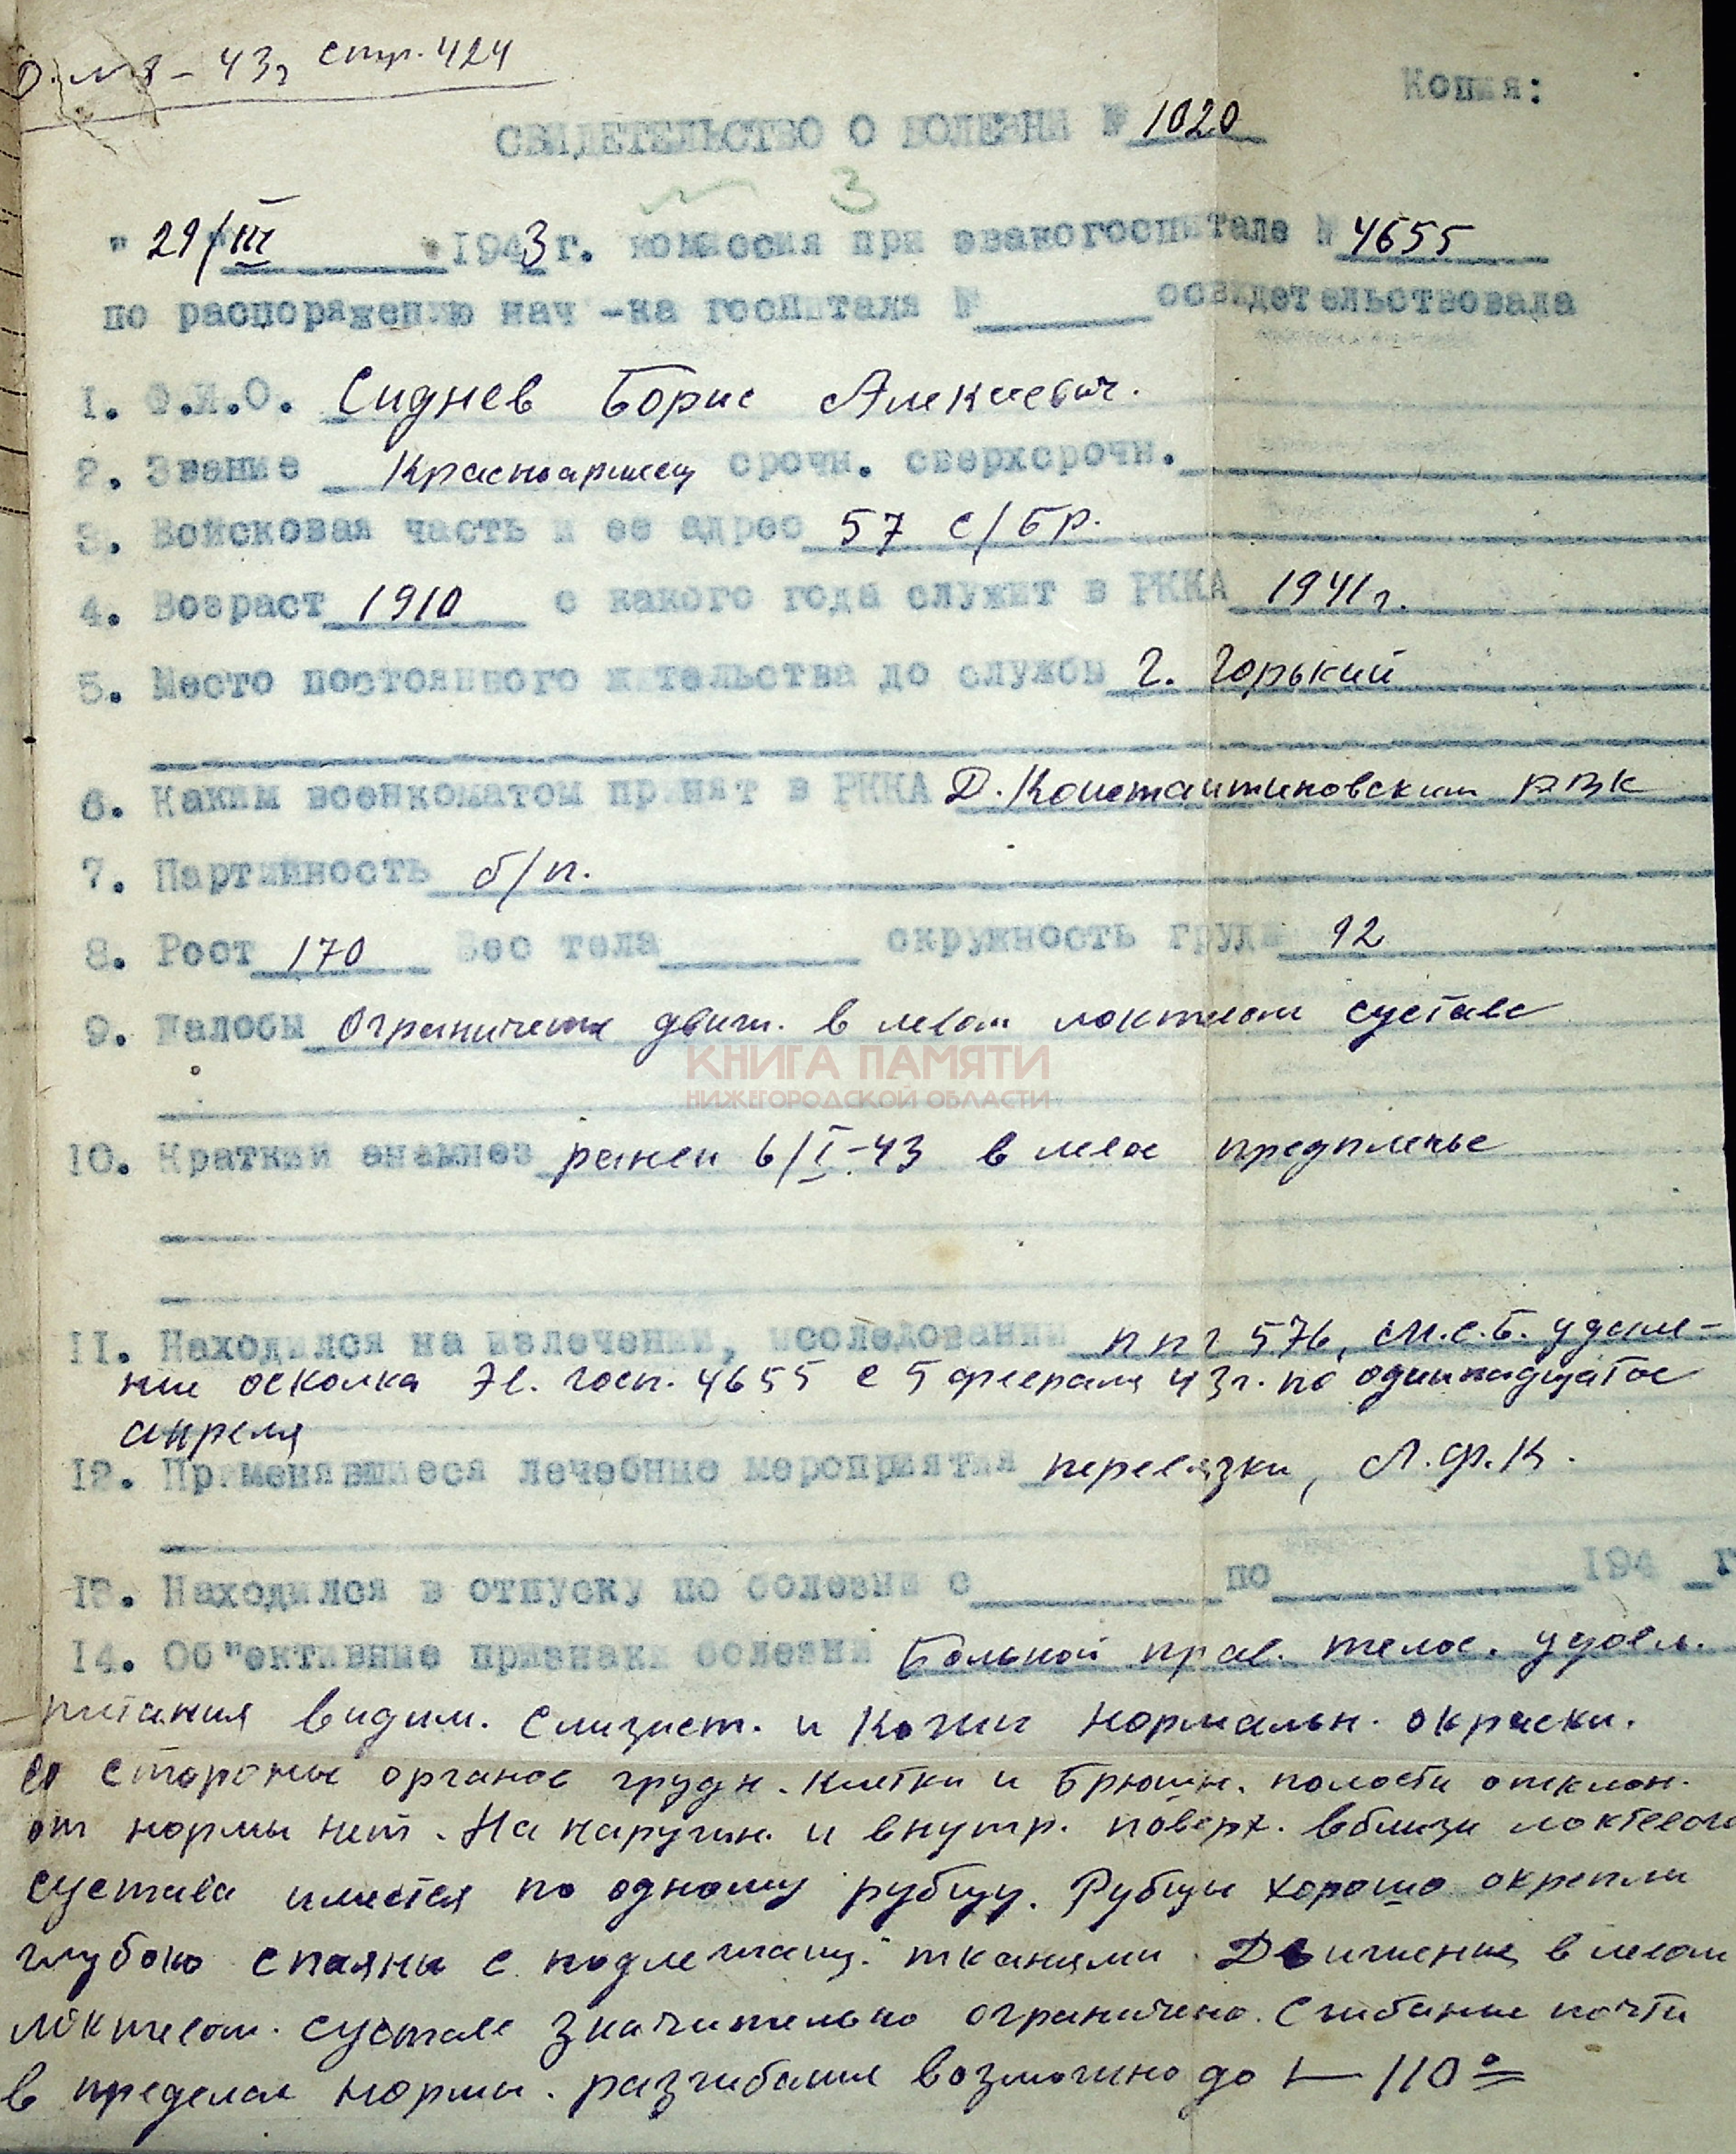 стр. 424
Копия:
СВИДЕТЕЛЬСТВО О БОЛЕЗНИ № 1020
3
" 29/III 1943 г. комиссия при эвакогоспитале № 4655
по распоряжению нач-ка госпиталя № освидетельствовала
1. Ф.И.О. Сиднев Борис Алексеевич.
2. Звание Красноармеец срочн. сверхсрочн.
3. Войсковая часть и ее адрес 57 с/бр.
4. Возраст 1910 с какого года служит в РККА 1941 г.
5. Место постоянного жительства до службы г. Горький
6. Каким военкоматом принят в РККА Д.Константиновским РВК
7. Партийность б/п.
8. Рост 170 Вес тела окружность груди 92
9. Жалобы Ограничения движ. в левом локтевом суставе
КНИГА ПАМЯТИ
НИЖЕГОРОДСКОЙ ОБЛАСТИ
10. Краткий анамнез ранен 6/I-43 в левое предплечье
11. Находился на излечении, исследовании ппг 576, м.с.б. удале-
ние осколка эв. госп. 4655 с 5 февраля 43 г. по одиннадцатое
апреля
12. Применявшиеся лечебные мероприятия перевязки, Л.Ф.К.
13. Находился в отпуску по болезни с по 194 г
14. Об"ективные признаки болезни Больной прав. телос. удовл.
питания видим. слизист. и кожи нормальн. окраски.
со стороны органов грудн. клетки и брюшн. полости отклон.
от нормы нет. На наружн. и внутр. поверх. вблизи локтевого
сустава имеется по одному рубцу. Рубцы хорошо окрепли
глубоко спаяны с подлежащ. тканями. Движения в левом
локтевом. суставе значительно ограничено. Сгибание почти
в пределах нормы. разгибания возможно до 110°